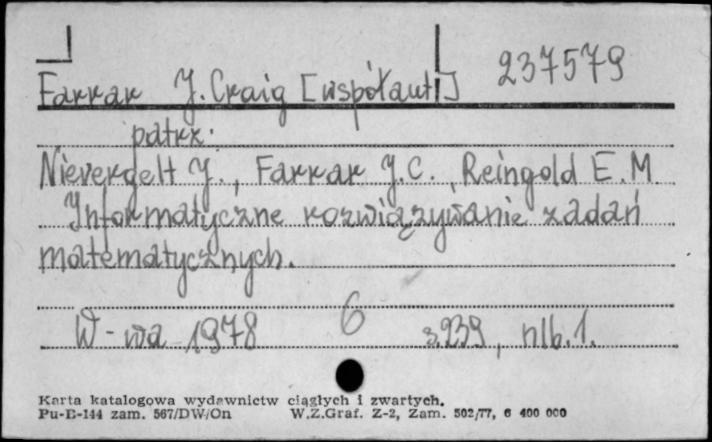 237579
Farrar J. Craig [współaut.]
patrz:
Nievergelt J., Farrar J.C., Reingold E.M.
Informatyczne rozwiązywanie zadań
matematycznych.
W-wa 1978 6 s.239, nlb.1.
Karta katalogowa wydawnictw ciągłych i zwartych.
Pu-D-144 zam. 567/DW/On W.Z.Graf. Z-2, Zam. 502/77, 6 400 000